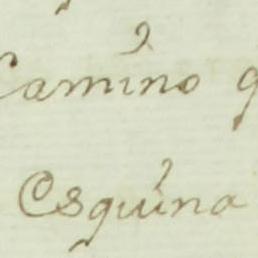 Camino
Esquina